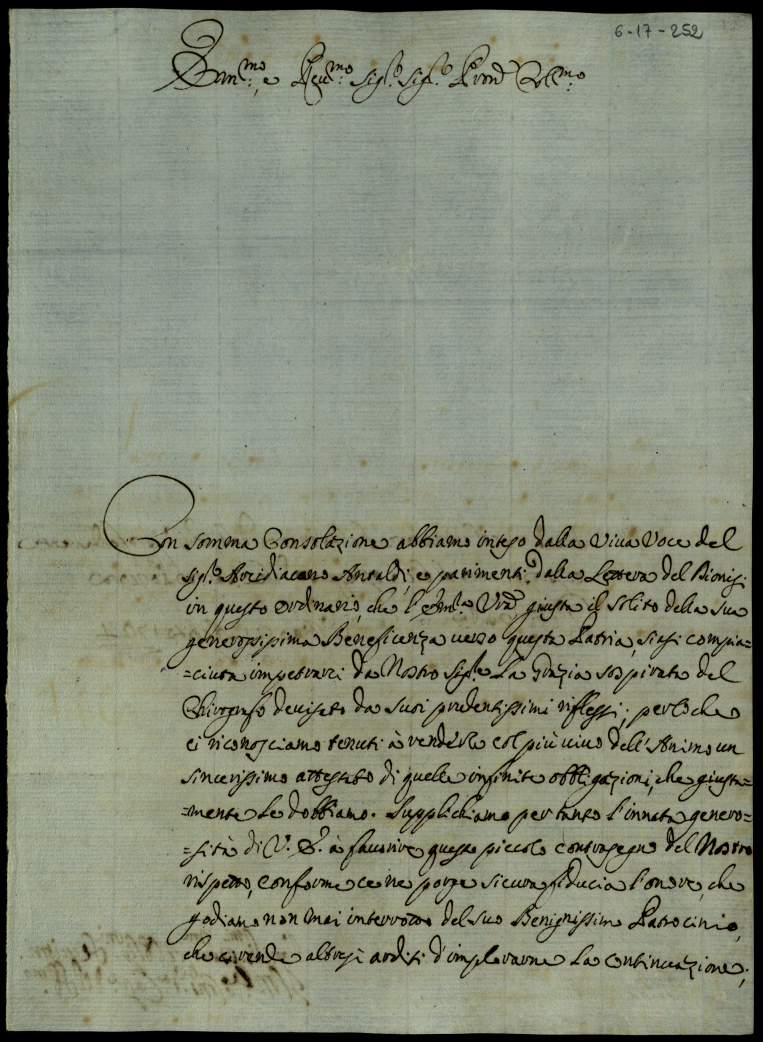 6-17-252
Em:mo, e Reu:mo Sig:r Sig:r Pron Col:mo
Con somma Consolazione abbiamo inteso dalla Viua Voce del
Sig:r Arcidiacono Antaldi, e parimenti dalla Lettera del Bionigi
in questo ordinario, che l'Em:a Vra, giusta il solito della sua
generosissima Beneficenza uerso questa Patria, siasi compia=
=ciuta impetrarci da Nostro Sig:re La Grazia sospirata del
Chirografo deuisato da suoi prudentissimi riflessi; perloche
ci riconosciamo tenuti à renderle col più uiuo dell'Animo un
sincerissimo attestato di quelle infinite obbligazioni, che giusta=
=mente Le dobbiamo. Supplichiamo per tanto l'innata genero=
=sità di V. E. à fauorire questo piccolo contrasegno del Nostro
rispetto, conforme ce ne porge sicura fiducia l'onore, che
godiamo non mai interrotto del suo Benignissimo Patrocinio,
che ci rende altresì arditi d'implorarne La continuazione;